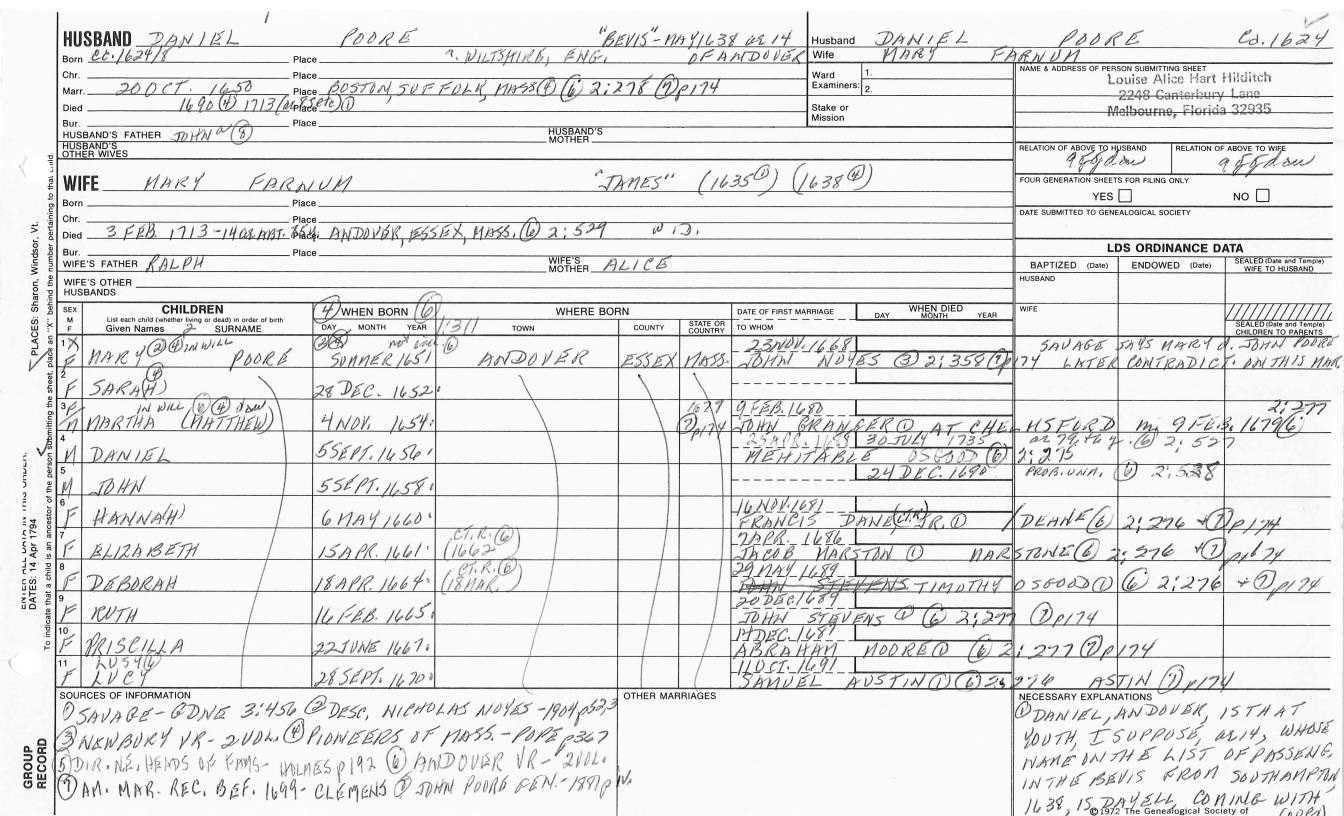 HUSBAND DANIEL POORE "BEVIS"-MAY 1638 ae 14
Born Ca. 1624/8 Place ?. WILTSHIRE, ENG. OF ANDOVER
Chr. Place
Marr. 20 OCT. 1650 Place BOSTON, SUFFOLK, MASS ④ ⑥ 2:278 ⑦ p174
Died 1690 ④ 1713 ① Place
Bur. Place
HUSBAND'S FATHER JOHN ⑧ HUSBAND'S MOTHER
HUSBAND'S OTHER WIVES
Husband DANIEL POORE Ca. 1624
Wife MARY FARNUM
Ward Examiners: 1.
2.
Stake or Mission
NAME & ADDRESS OF PERSON SUBMITTING SHEET
Louise Alice Hart Hilditch
2248 Canterbury Lane
Melbourne, Florida 32935
RELATION OF ABOVE TO HUSBAND RELATION OF ABOVE TO WIFE
FOUR GENERATION SHEETS FOR FILING ONLY
YES NO
DATE SUBMITTED TO GENEALOGICAL SOCIETY
WIFE MARY FARNUM "JAMES" (1635 ①) (1638 ④)
Born Place
Chr. Place
Died 3 FEB. 1713-14 Place ANDOVER, ESSEX, MASS. ⑥ 2:529 WID.
Bur. Place
WIFE'S FATHER RALPH WIFE'S MOTHER ALICE
WIFE'S OTHER HUSBANDS
LDS ORDINANCE DATA
BAPTIZED (Date) ENDOWED (Date) SEALED (Date and Temple) WIFE TO HUSBAND
HUSBAND
WIFE
SEALED (Date and Temple) CHILDREN TO PARENTS
SEX M F
CHILDREN
List each child (whether living or dead) in order of birth
Given Names SURNAME
④ WHEN BORN ⑥ 1:311
DAY MONTH YEAR
WHERE BORN
TOWN COUNTY STATE OR COUNTRY
DATE OF FIRST MARRIAGE
TO WHOM
WHEN DIED
DAY MONTH YEAR
1 X 23 NOV. 1668
F MARY ② ④ IN WILL POORE SUMMER 1651 ANDOVER ESSEX MASS. JOHN NOYES ③ 2:358 ⑦ p174
SAVAGE SAYS MARY d. JOHN POORE
LATER CONTRADICT. ON THIS MAR.
2
F SARAH ④ 28 DEC. 1652
3 F IN WILL ⑥ ④ 1679 9 FEB. 1680 2:277
M MARTHA (MATTHEW) 4 NOV. 1654 ⑦ p174 JOHN GRANGER ① AT CHELMSFORD m. 9 FEB. 1679 ⑥
4 25 APR. 1688 30 JULY 1735 ⑥ 2:527
M DANIEL 5 SEPT. 1656 MEHITABLE OSGOOD ⑥ 2:275
5 24 DEC. 1690 PROB. UNA. ⑥ 2:528
M JOHN 5 SEPT. 1658
6 16 NOV. 1681
F HANNAH 6 MAY 1660 FRANCIS DANE (CT.R) JR. ① / DEANE ⑥ 2:276 + ⑦ p174
7 CT.R. ⑥ 7 APR. 1686
F ELIZABETH 15 APR. 1661 (1662 JACOB MARSTON ① MARSTONE ⑥ 2:276 + ⑦ p174
8 CT.R. ⑥ 29 MAY 1689
F DEBORAH 18 APR. 1664 (18 MAR.) JOHN STEVENS TIMOTHY OSGOOD ① ⑥ 2:276 + ⑦ p174
9 20 DEC. 1689
F RUTH 16 FEB. 1665 JOHN STEVENS ① ⑥ 2:277 ⑦ p174
10 14 DEC. 1687
F PRISCILLA 22 JUNE 1667 ABRAHAM MOORE ① ⑥ 2:277 ⑦ p174
11 LUSY ⑥ 11 OCT. 1691
F LUCY 28 SEPT. 1670 SAMUEL AUSTIN ① ⑥ 2:276 ASTIN ⑦ p174
SOURCES OF INFORMATION
① SAVAGE-GDNE 3:456 ② DESC. NICHOLAS NOYES-1904 p52,3
③ NEWBURY VR-2 VOL. ④ PIONEERS OF MASS.-POPE p367
⑤ DIR. NE. HEADS OF FAMS- HOLMES p192 ⑥ ANDOVER VR- 2 VOL.
⑦ AM. MAR. REC. BEF. 1699- CLEMENS JOHN POORE GEN.-1881 p
OTHER MARRIAGES
NECESSARY EXPLANATIONS
① DANIEL, ANDOVER, IS THAT
YOUTH, I SUPPOSE, ae 14, WHOSE
NAME ON THE LIST OF PASSENG.
IN THE BEVIS FROM SOUTHAMPTON
1638, IS DAYELL, COMING WITH
©1972 The Genealogical Society of
PLACES: Sharon, Windsor, Vt.
ENTER ALL DATA IN THIS ORDER:
DATES: 14 Apr 1794
To indicate that a child is an ancestor of the person submitting the sheet, place an "X" behind the number pertaining to that child.
GROUP RECORD